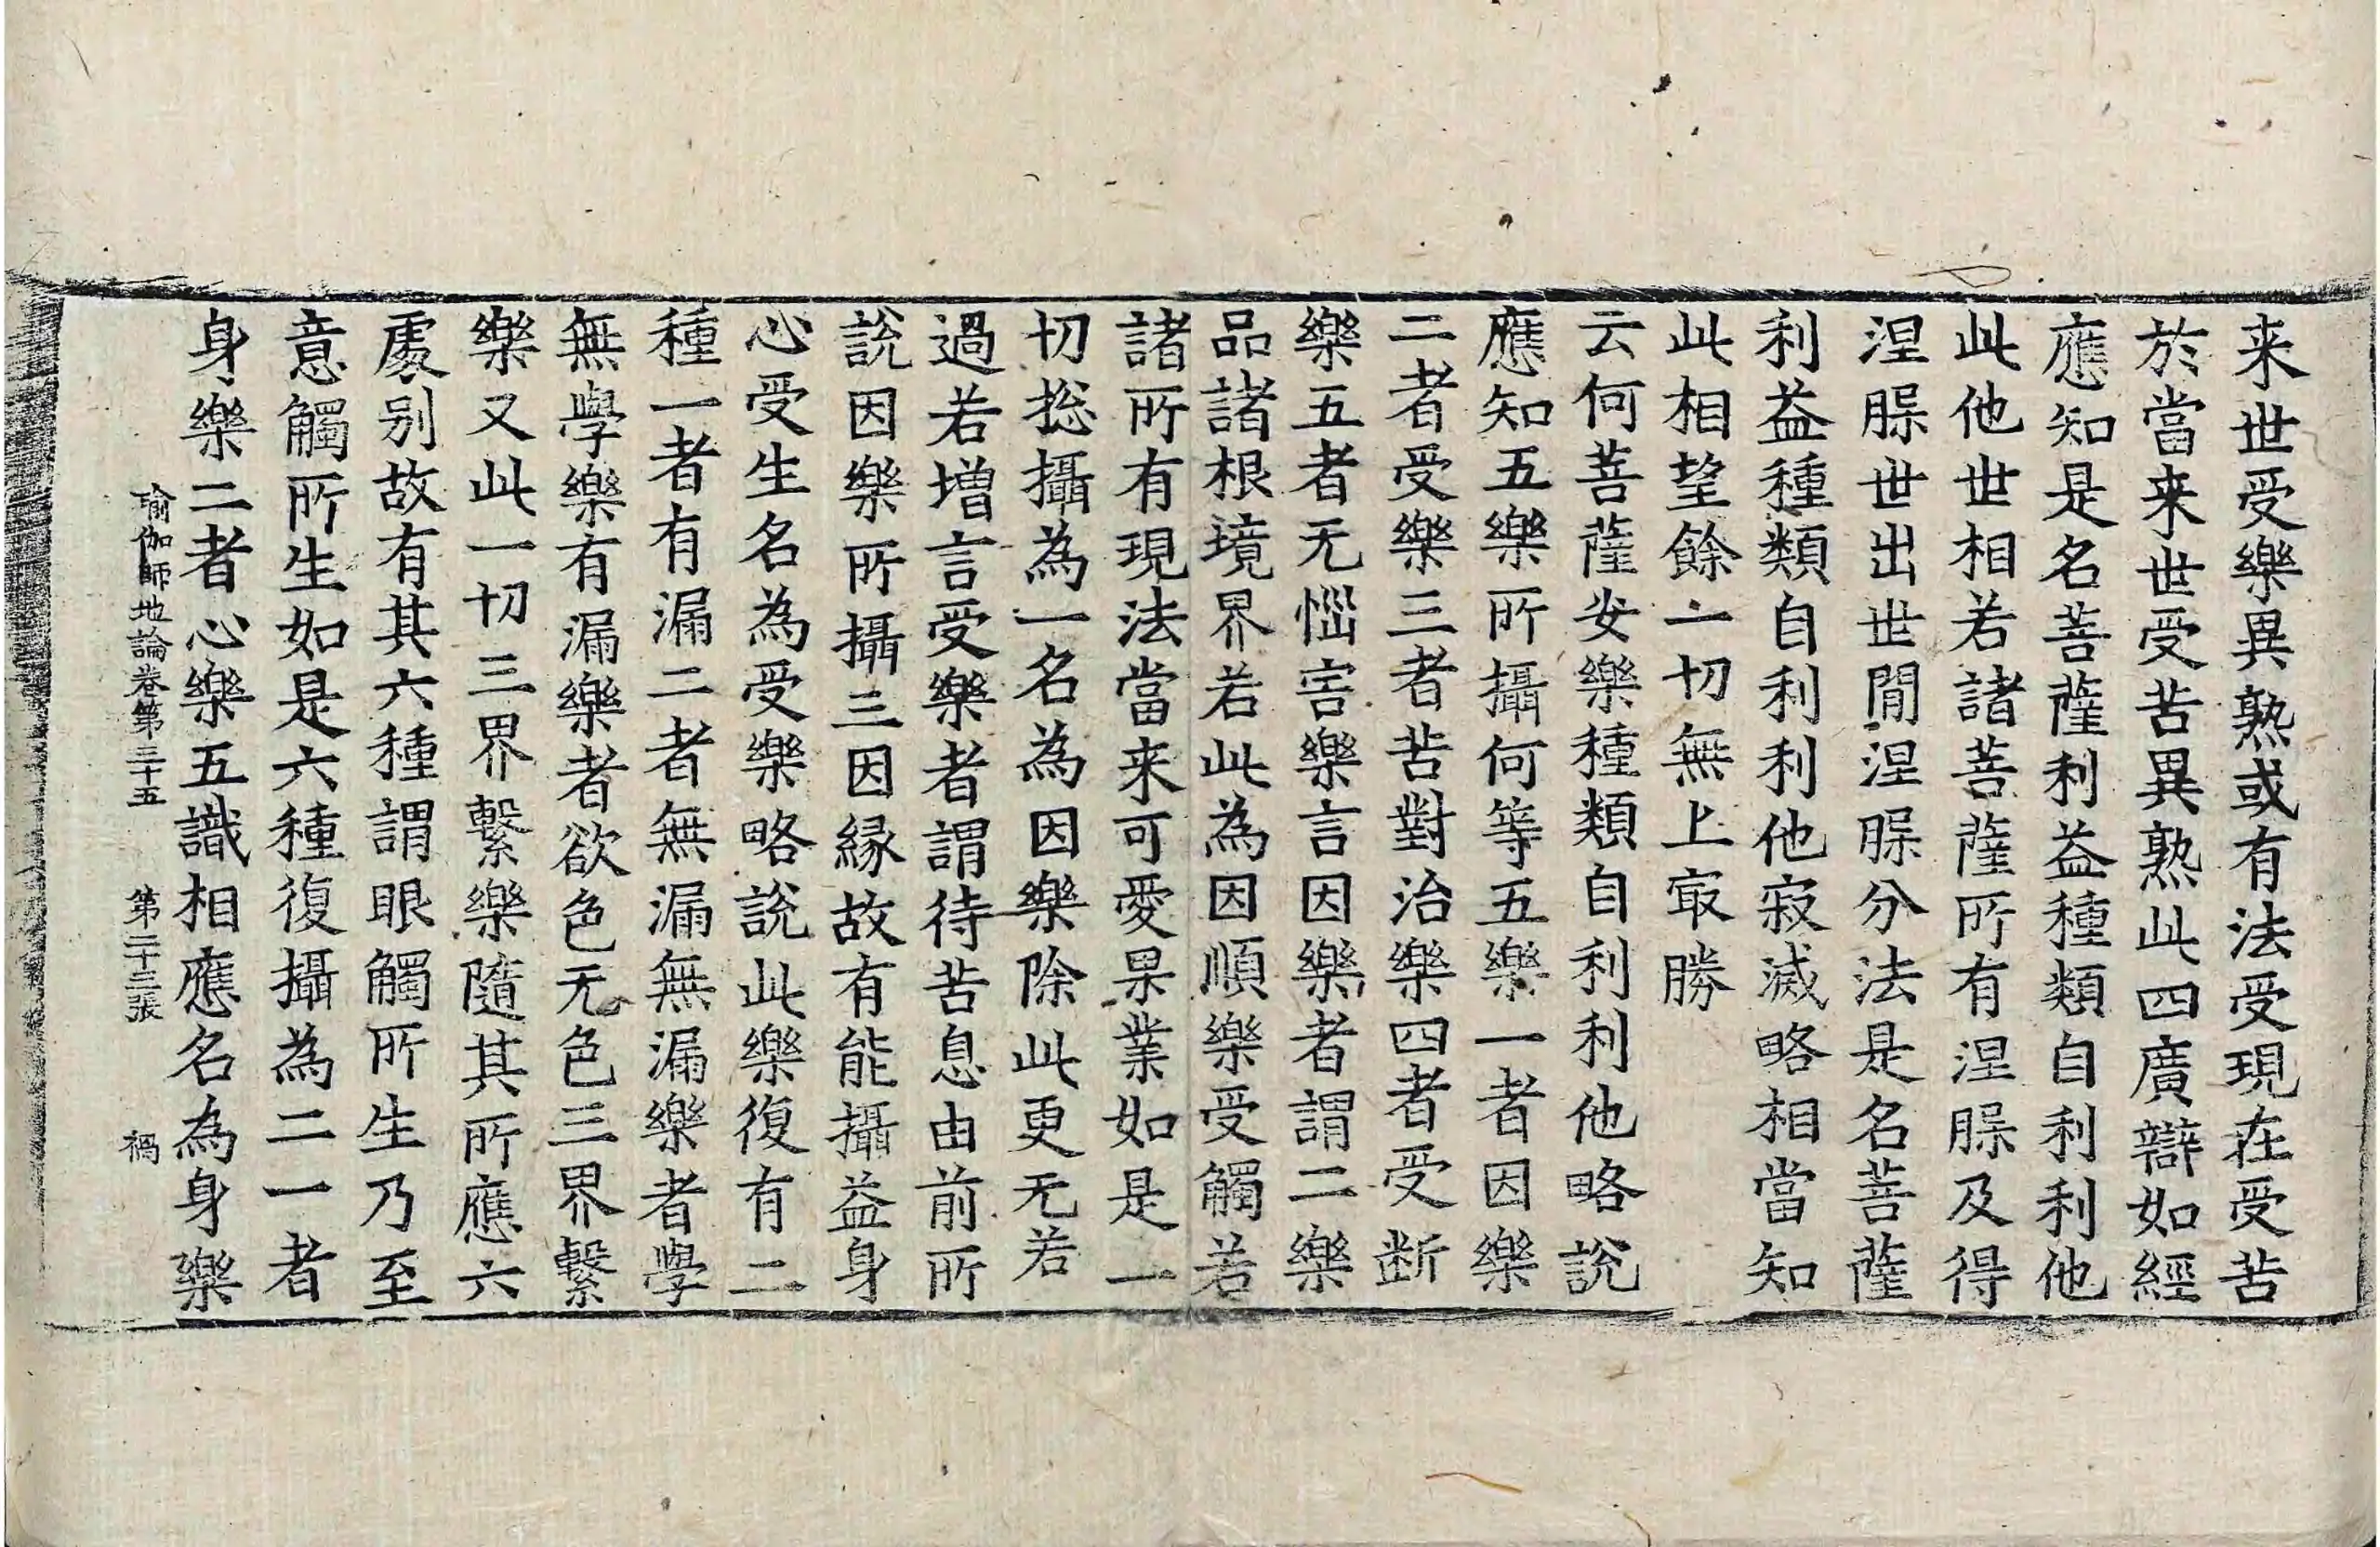 来世受樂異熟或有法受現在受苦
於當来世受苦異熟此四廣辯如經
應知是名菩薩利益種類自利利他
此他世相若諸菩薩所有涅脲及得
涅脲世出世閒涅脲分法是名菩薩
利益種類自利利他寂滅略相當知
此相望餘一切無上冣勝
云何菩薩安樂種類自利利他略說
應知五樂所攝何等五樂一者因樂
二者受樂三者苦對治樂四者受断
樂五者无惱害樂言因樂者謂二樂
品諸根境界若此為因順樂受觸若
諸所有現法當来可愛果業如是一
切揔攝為一名為因樂除此更无若
過若増言受樂者謂待苦息由前所
說因樂所攝三因縁故有能攝益身
心受生名為受樂略說此樂復有二
種一者有漏二者無漏無漏樂者學
無學樂有漏樂者欲色无色三界繫
樂又此一切三界繫樂隨其所應六
處别故有其六種謂眼觸所生乃至
意觸所生如是六種復攝為二一者
身樂二者心樂五識相應名為身樂
瑜伽師地論卷第三十五 第二十三張 禍